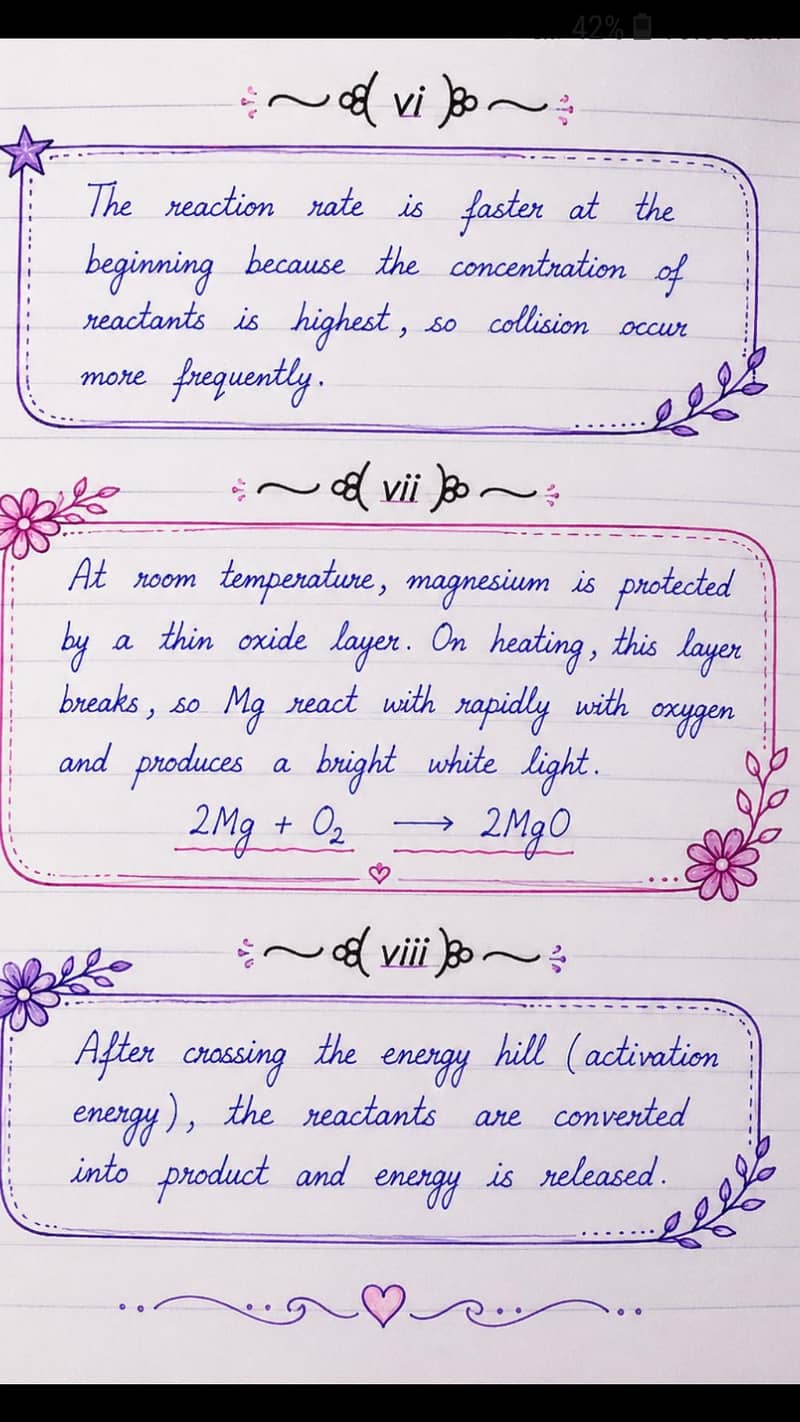 42%
vi
The reaction rate is faster at the
beginning because the concentration of
reactants is highest, so collision occur
more frequently.
vii
At room temperature, magnesium is protected
by a thin oxide layer. On heating, this layer
breaks, so Mg react with rapidly with oxygen
and produces a bright white light.
2Mg + O₂ ⟶ 2MgO
viii
After crossing the energy hill (activation
energy), the reactants are converted
into product and energy is released.